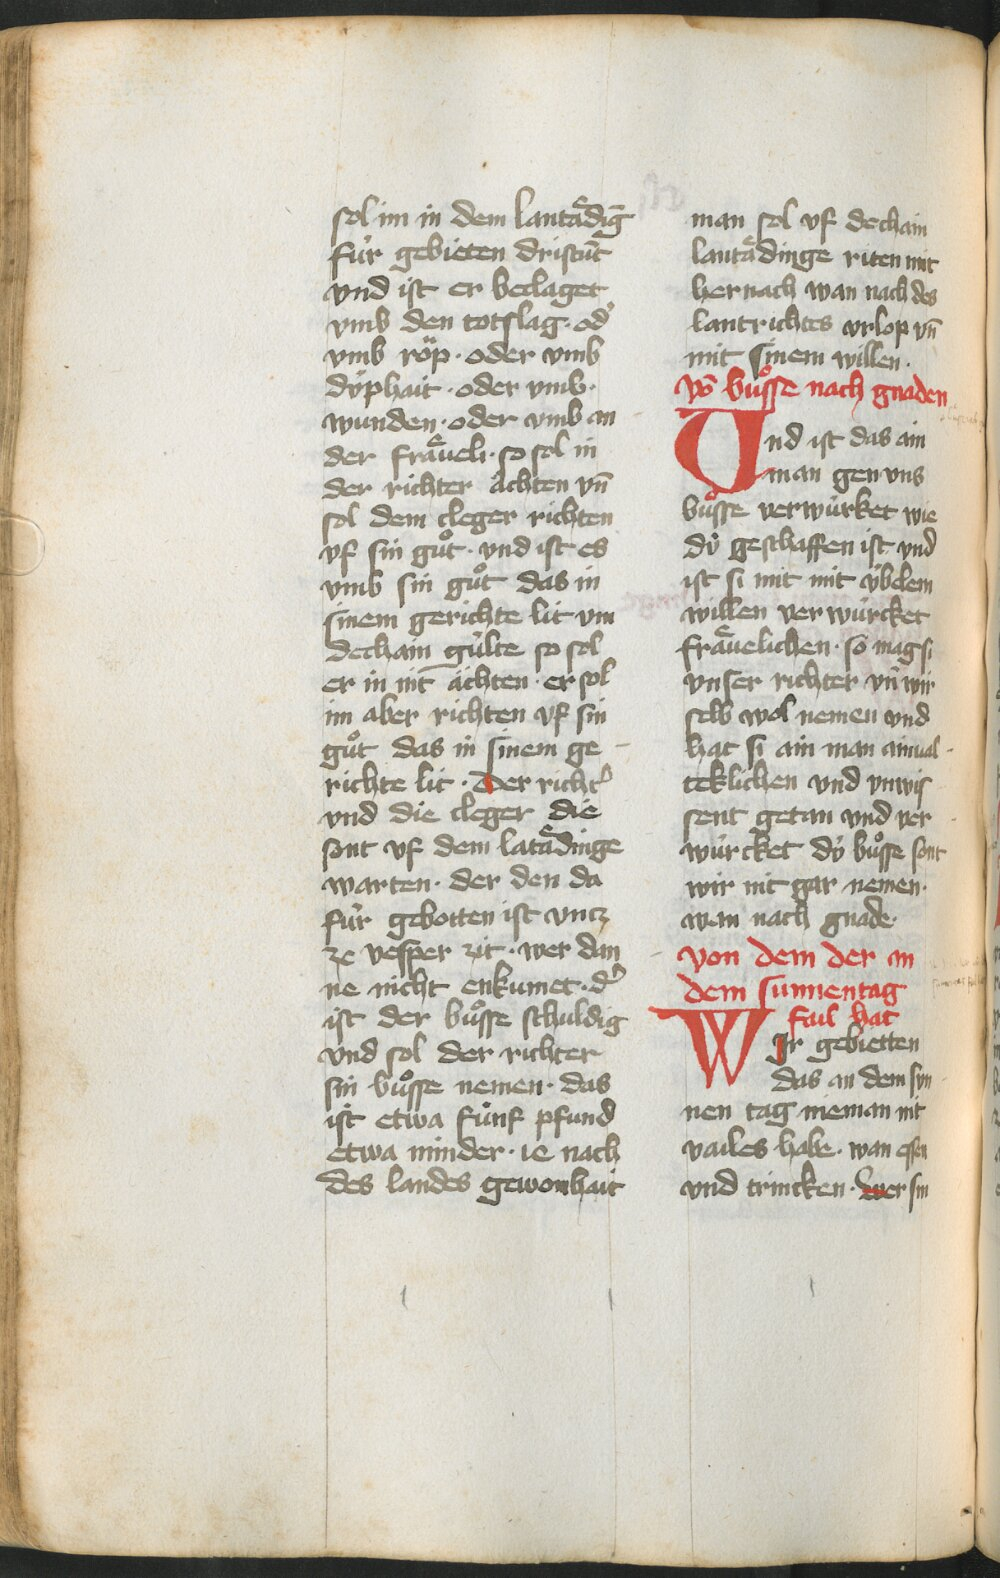 sol im in dem lantaͤdinḡ
fuͤr gebieten dristūt
vnd ist er beclaget
vmb den totslag · od᷑
vmb roͤp · oder vmb
dyͤphait · oder vmb ·
wunden · oder vmb an
der fraͤueli · so sol in
der richter aͤchten vn̄
sol dem cleger richten
vf sin guͦt · vnd ist es
vmb sin guͦt das in
sinem gerichte lit vm
dechain guͤlte so sol
er in nit̄ aͤchten · er sol
im aber richten vf sin
guͦt das in sinem ge
richte lit · Der richt᷑
vnd die cleger die
sont vf dem lataͤdinge
warten · der den da
fuͤr gebotten ist vncz
ze vesper zit · wer dan
ne nicht enkumet · d᷑
ist der buͦsse schuldig
vnd sol der richter
sin buͦsse nemen · das
ist etwa fuͤnf pfund
etwa minder · ie nach
des landes gewonhait
man sol vf dechain
lantaͤdinge riten mit
hernach wan nach des
lantrichtes vrlop vn̄
mit sinem willen ·
vō buͦsse nach gnaden
Vnd ist das ain
man gen vns
buͦsse verwuͤrket wie
dyͤ geschaffen ist vnd
ist si mit mit vͤbelem
willen verwuͤrcket
fraͤuelichen · so mag si
vnser richter vn̄ wir
selb wol nemen vnd
hat si ain man ainual
teklichen vnd vnwis
sent getan vnd ver
wuͤrcket dyͤ buͦsse sont
wir nit gar nemen ·
wem nach gnade ·
von dem der an
dem sunnentag
fail hat
WIr gebietten
das an dem sun
nen tag nieman nit
vailes habe · wan essen
vnd trincken · Wer sin